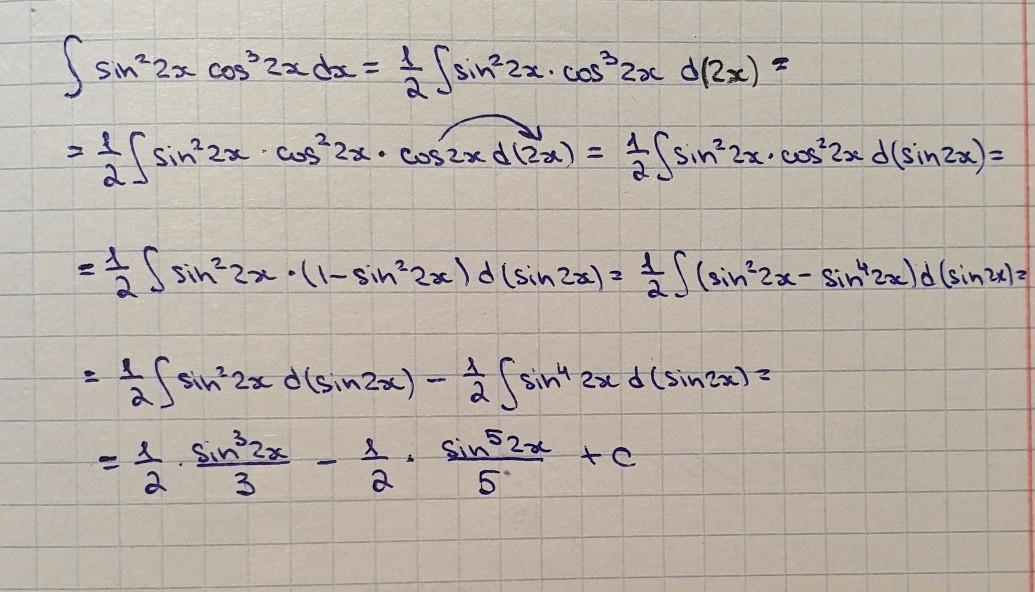 ∫ sin²2x cos³2x dx = 1/2 ∫ sin²2x · cos³2x d(2x) =
= 1/2 ∫ sin²2x · cos²2x · cos2x d(2x) = 1/2 ∫ sin²2x · cos²2x d(sin2x) =
= 1/2 ∫ sin²2x · (1 - sin²2x) d(sin2x) = 1/2 ∫ (sin²2x - sin⁴2x) d(sin2x) =
= 1/2 ∫ sin²2x d(sin2x) - 1/2 ∫ sin⁴2x d(sin2x) =
= 1/2 · sin³2x/3 - 1/2 · sin⁵2x/5 + C